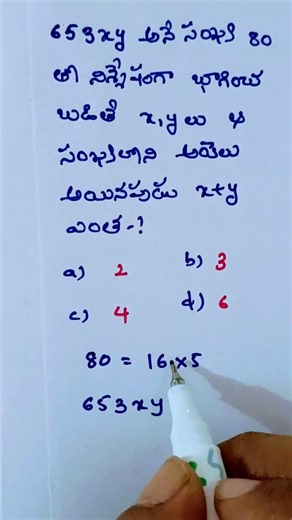 653xy అనే సంఖ్య 80
తో నిశ్శేషంగా భాగించ
బడితే x,y లు ఆ
సంఖ్యలోని అంకెలు
అయినపుడు x+y
ఎంత-?
a) 2 b) 3
c) 4 d) 6
80 = 16 x 5
653xy